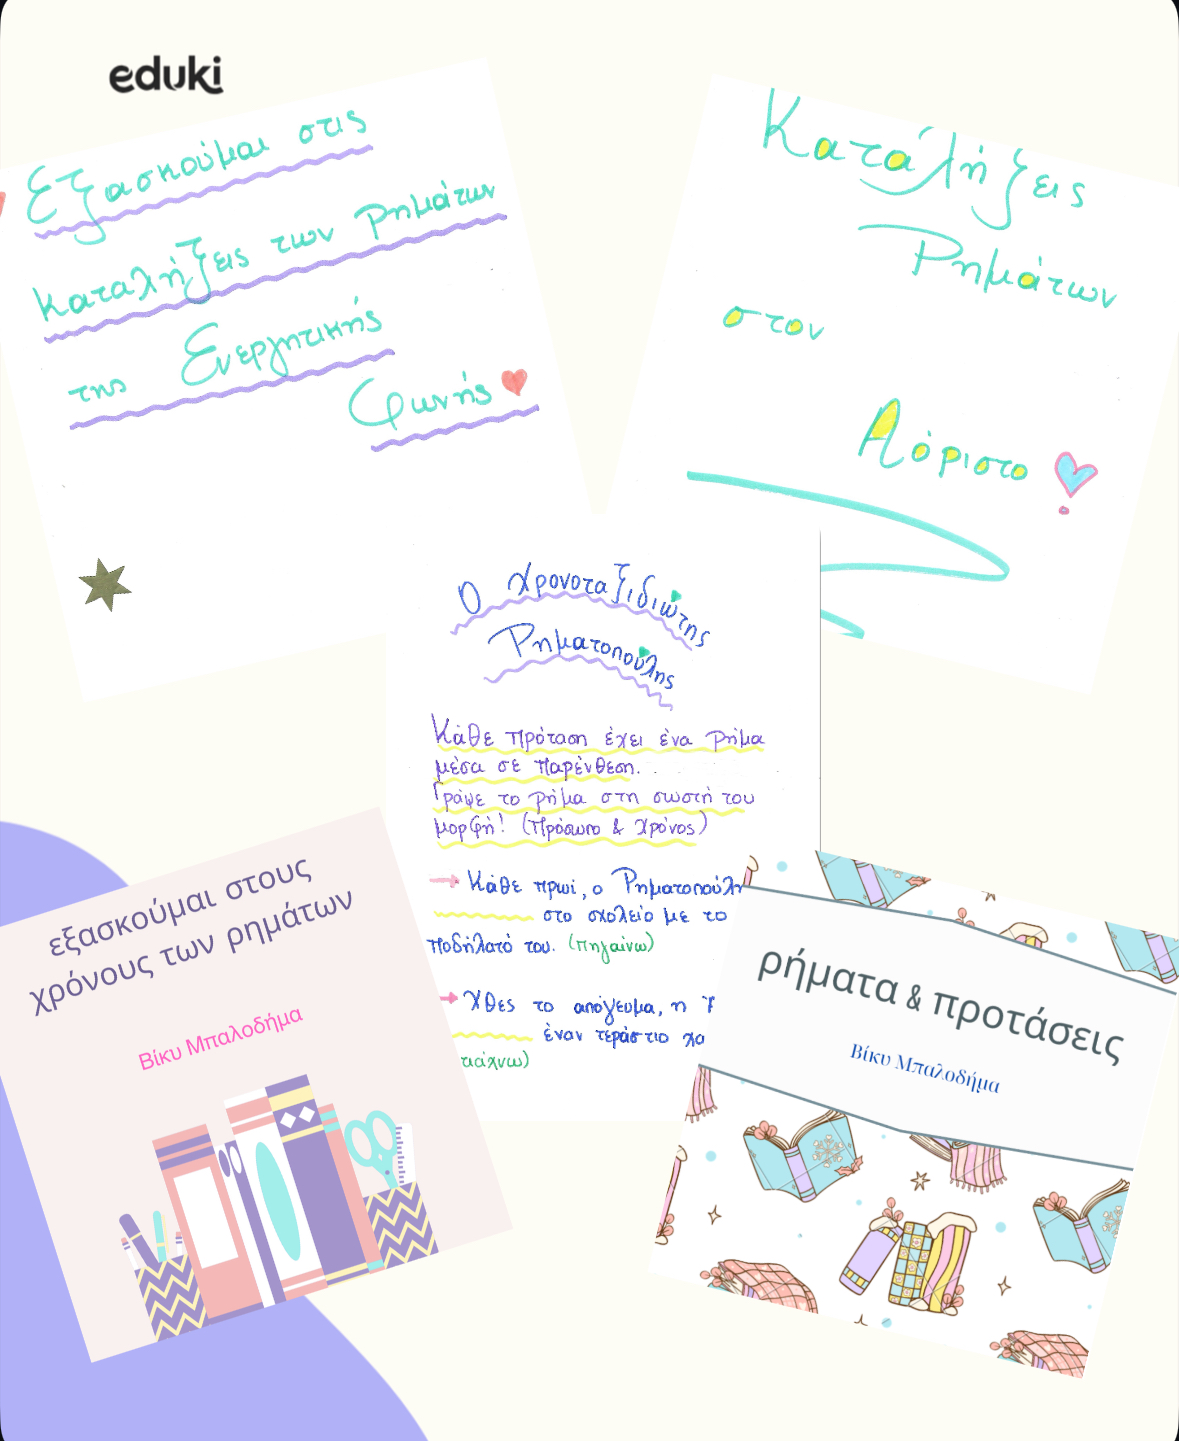 eduki
Εξασκούμαι στις
καταλήξεις των Ρημάτων
της Ενεργητικής
Φωνής
Καταλήξεις
Ρημάτων
στον
Αόριστο
Ο Χρονοταξιδιώτης
Ρηματοπούλης
Κάθε πρόταση έχει ένα ρήμα
μέσα σε παρένθεση.
Γράψε το ρήμα στη σωστή του
μορφή! (Πρόσωπο & Χρόνος)
→ Κάθε πρωί, ο Ρηματοπούλη
στο σχολείο με το
ποδήλατό του. (πηγαίνω)
→ Χθες το απόγευμα, η
έναν τεράστιο χα
τιάχνω)
εξασκούμαι στους
χρόνους των ρημάτων
Βίκυ Μπαλοδήμα
ρήματα & προτάσεις
Βίκυ Μπαλοδήμα